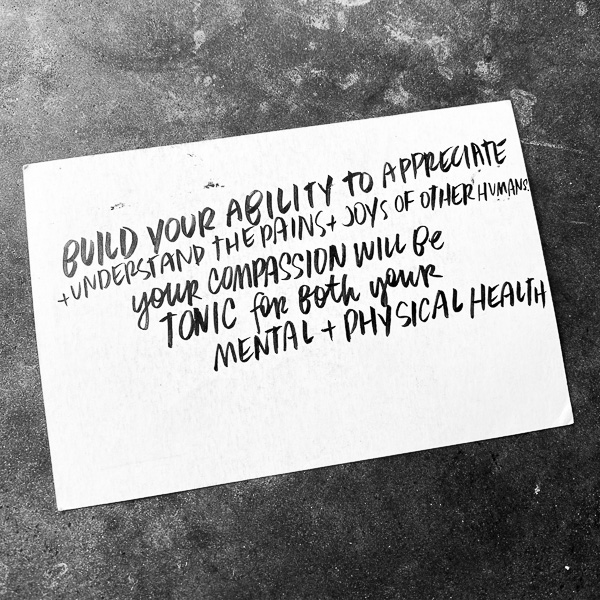 BUILD YOUR ABILITY TO APPRECIATE
+ UNDERSTAND THE PAINS + JOYS OF OTHER HUMANS.
your COMPASSION WILL Be
TONIC for BOTH your
MENTAL + PHYSICAL HEALTH